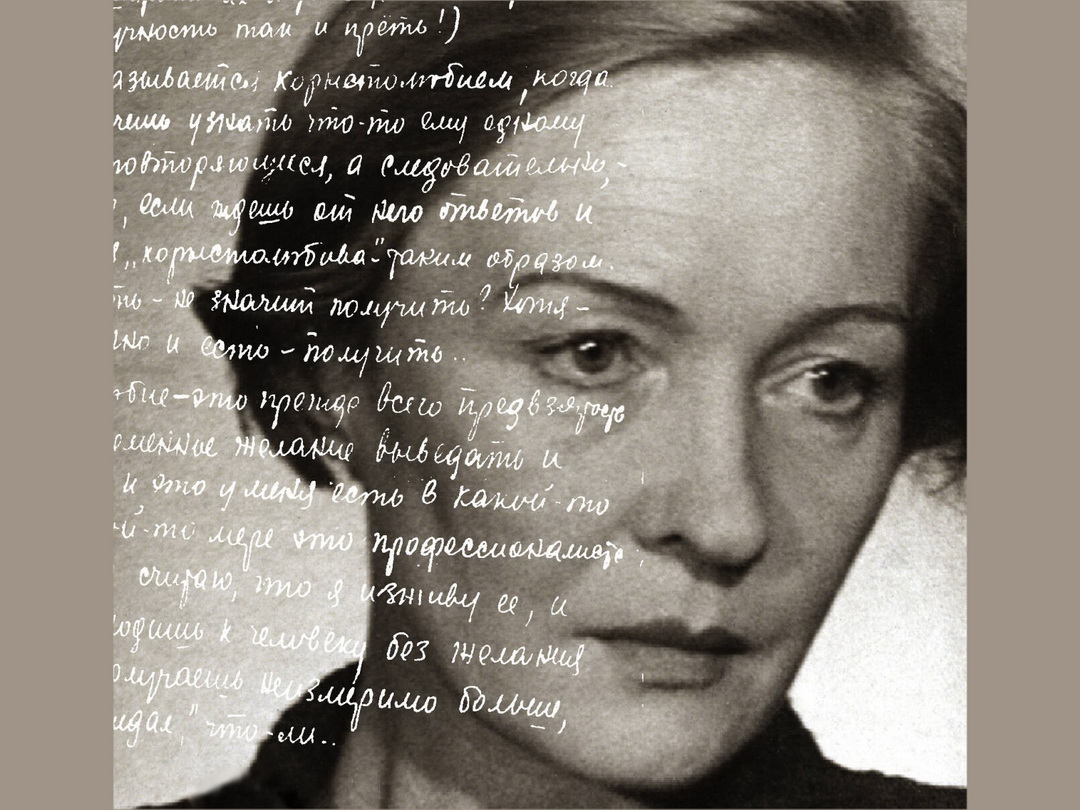 учность там и преть!)
азывается корыстолюбием, когда
чешь узнать что-то ему одному
повторяющиеся, а следовательно,-
, если ждешь от него ответов и
„корыстолюбива"- таким образом.
ть - не значит получить? Хотя -
но и есть - получить..
юбие - это прежде всего предвзятость
еменное желание выведать и
и это у меня есть в какой-то
й-то мере это профессионалист
считаю, что я изживу ее, и
одишь к человеку без желания
олучаешь неизмеримо больше,
идал," что-ли..